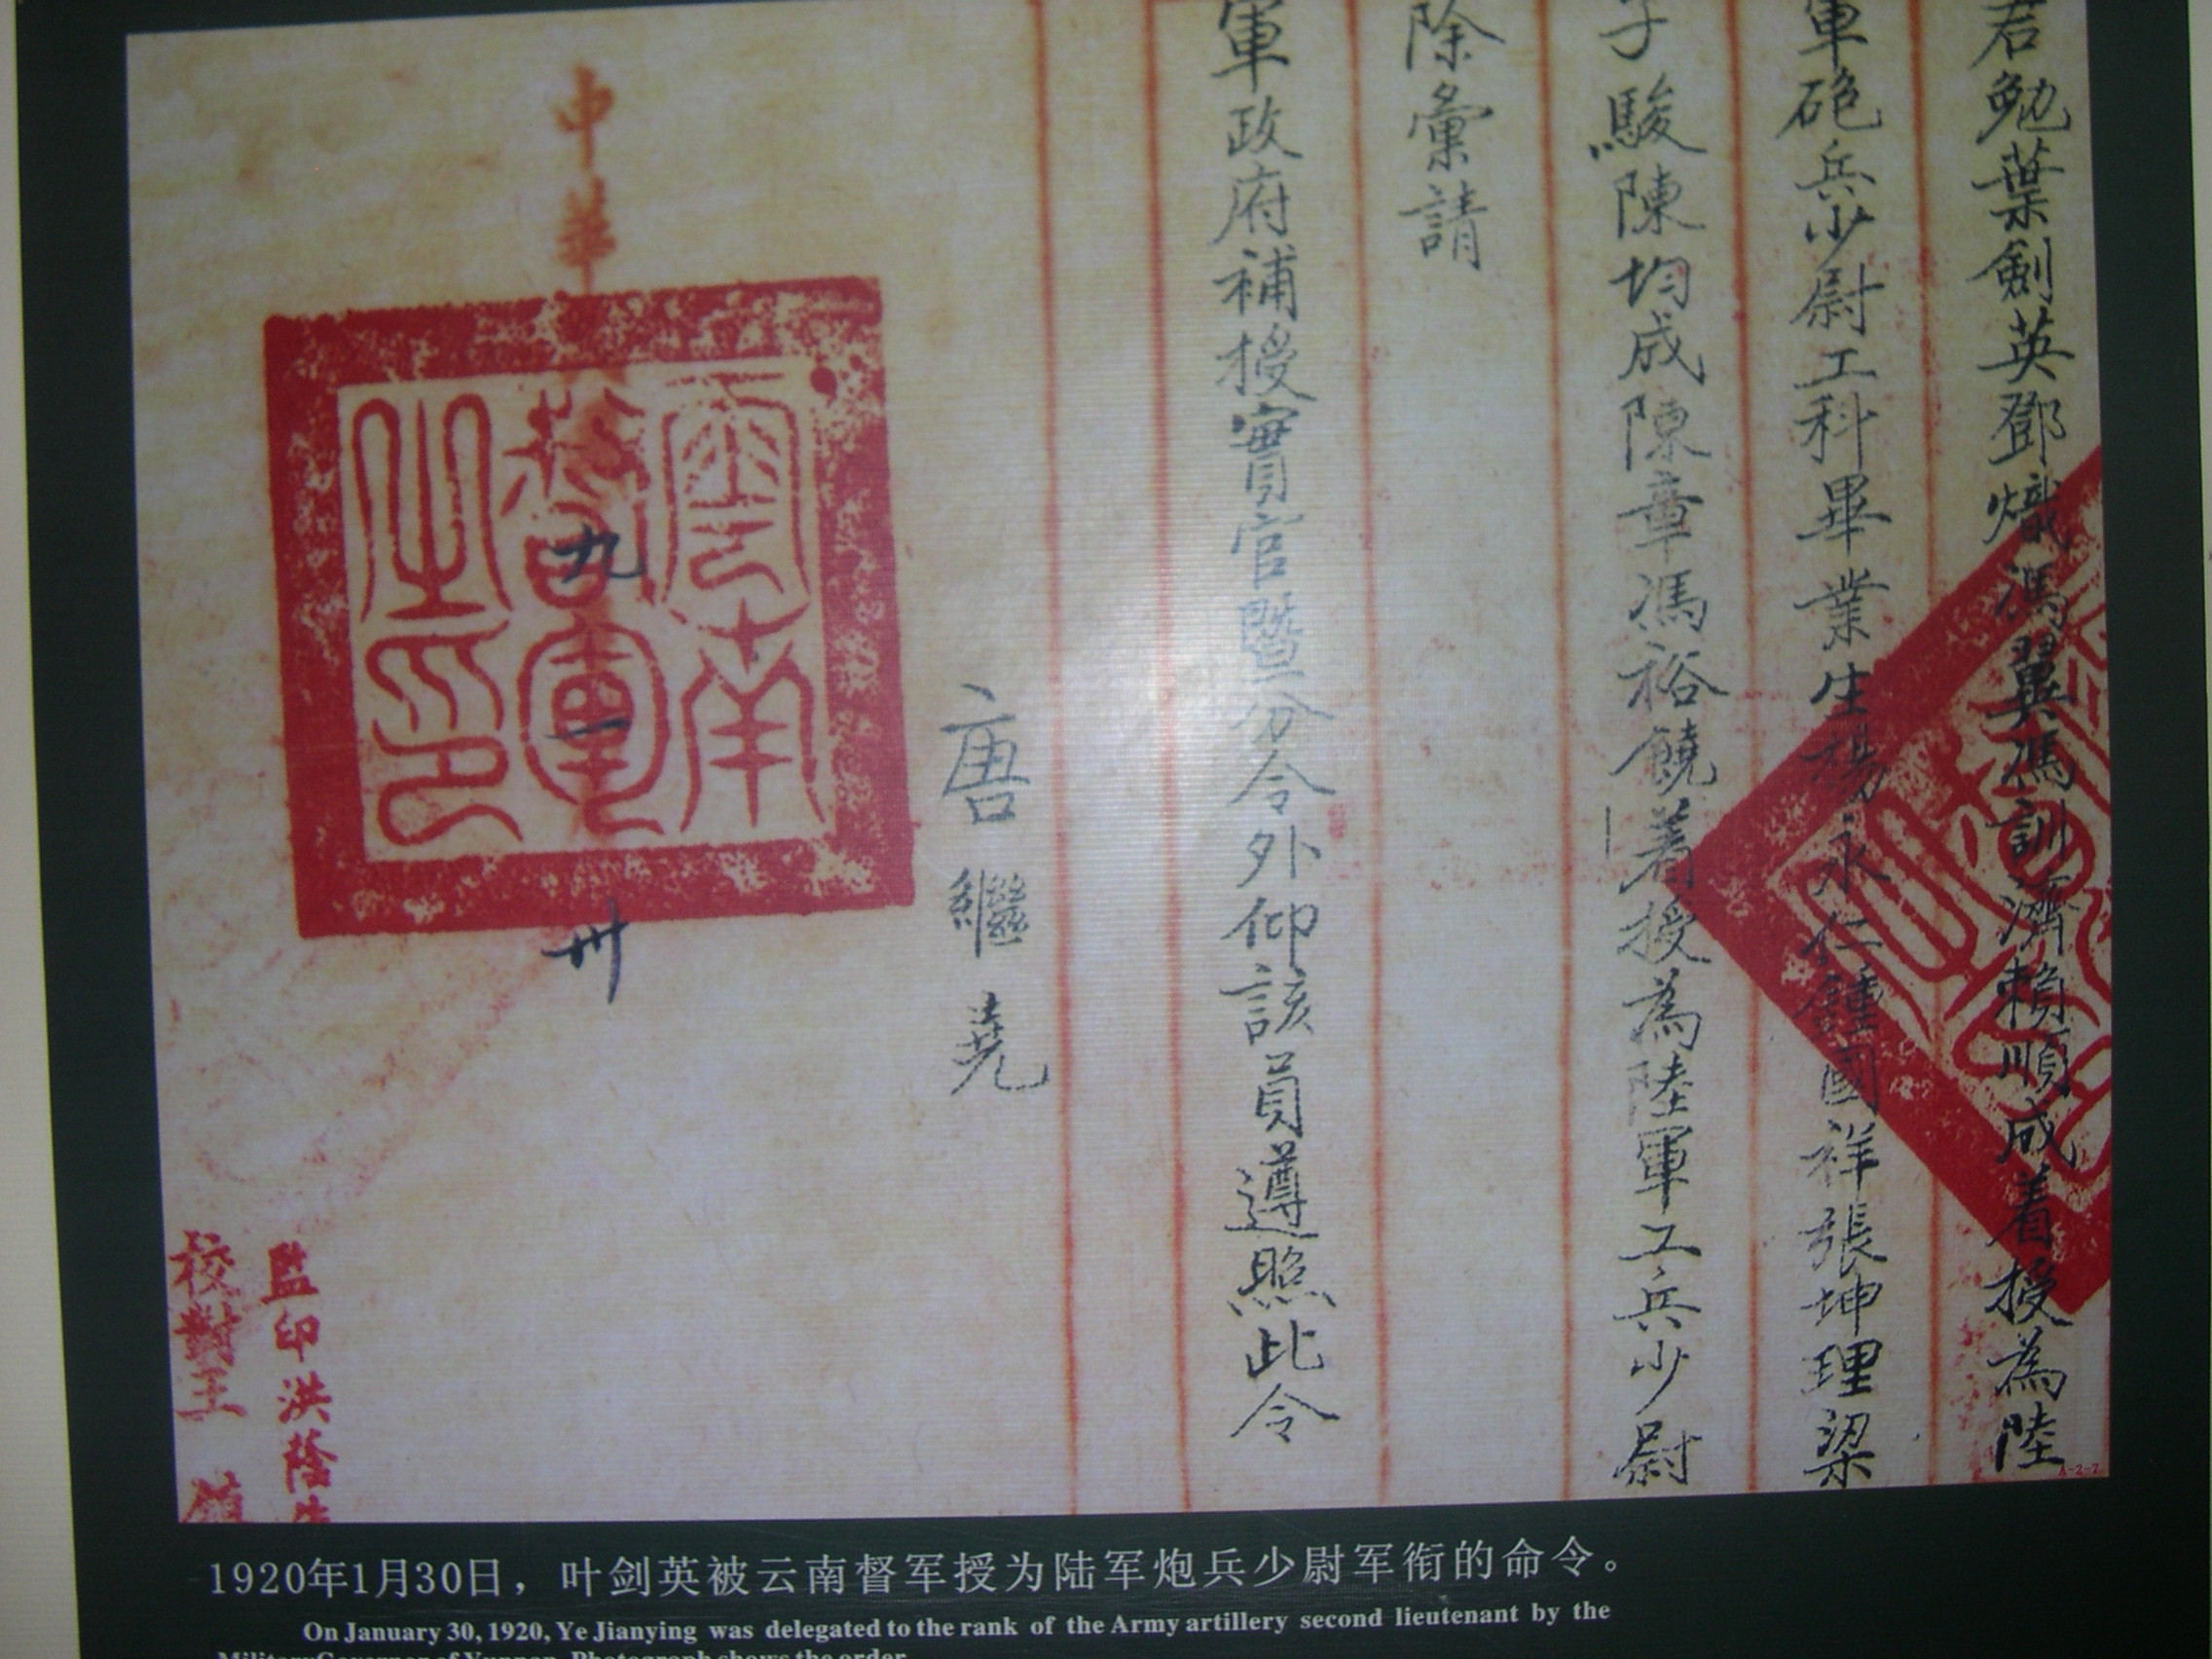 君勉葉劍英鄧熾馮翼馮訓濟賴順成着授為陸
軍砲兵少尉工科畢業生楊永仁鍾國祥張坤理梁
子駿陳均成陳章馮裕饒着授為陸軍工兵少尉
除彙請
軍政府補授實官暨分令外仰該員遵照此令
唐繼堯
中華
九
一
卅
雲南
督軍
之印
監印洪蔭生
校對王
1920年1月30日，叶剑英被云南督军授为陆军炮兵少尉军衔的命令。
On January 30, 1920, Ye Jianying was delegated to the rank of the Army artillery second lieutenant by the
Military Governor of Yunnan. Photograph shows the order.
A-2-7